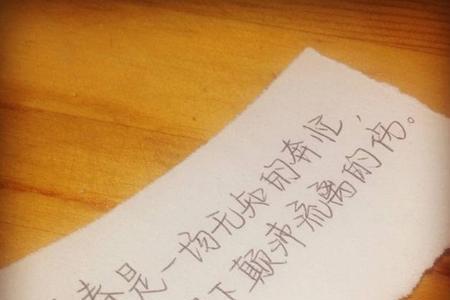 春是一场无知的奔忙，
下颠沛流离的伤。